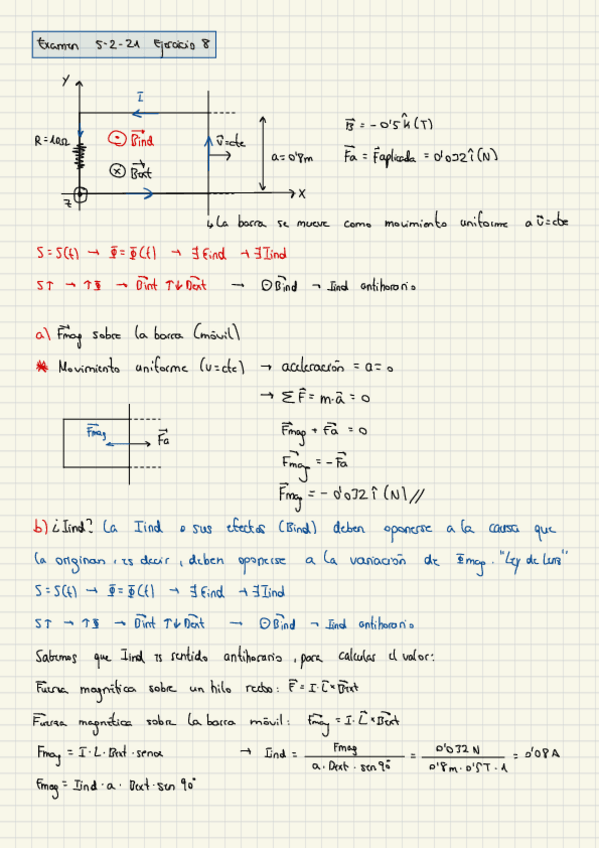 Examen 5-2-21 Ejercicio 8
Y
I
R=10Ω
Bind
v=cte
a=0'8m
Bext
Z
X
B = -0'5 k (T)
Fa = Faplicada = 0'032 î (N)
↳ La barra se mueve como movimiento uniforme a v=cte
S=S(t) → Φ=Φ(t) → ∃ Eind → ∃ Iind
S↑ → ↑Φ → Bint ↑↓ Bext → ⊙Bind → Iind antihorario
a) Fmag sobre la barra (móvil)
* Movimiento uniforme (v=cte) → aceleración = a = 0
→ ΣF = m·a = 0
Fmag
Fa
Fmag + Fa = 0
Fmag = -Fa
Fmag = -0'032 î (N)//
b) ¿Iind? La Iind o sus efectos (Bind) deben oponerse a la causa que
la originan, es decir, deben oponerse a la variación de Φmag. "Ley de Lenz"
S=S(t) → Φ=Φ(t) → ∃ Eind → ∃ Iind
S↑ → ↑Φ → Bint ↑↓ Bext → ⊙Bind → Iind antihorario
Sabemos que Iind es sentido antihorario, para calcular el valor:
Fuerza magnética sobre un hilo recto: F = I·L×Bext
Fuerza magnética sobre la barra móvil: Fmag = I·L×Bext
Fmag = I·L·Bext·senα → Iind = Fmag / a·Bext·sen 90° = 0'032 N / 0'8m·0'5T·1 = 0'08 A
Fmag = Iind·a·Bext·sen 90°